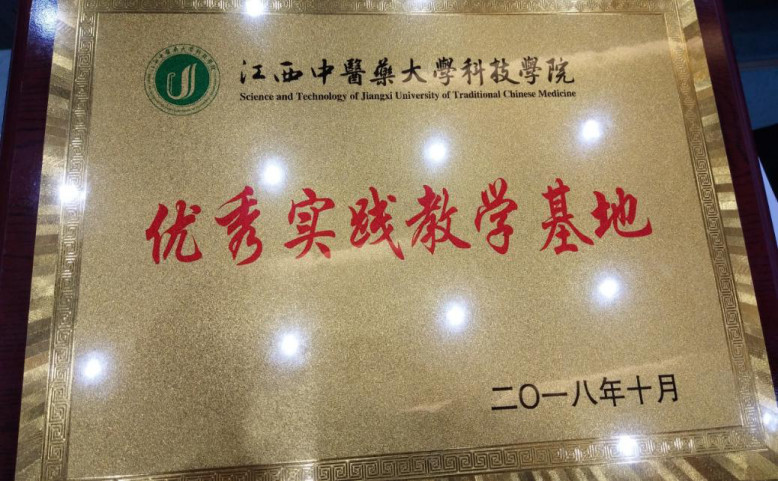 江西中醫藥大學科技學院
Science and Technology of Jiangxi University of Traditional Chinese Medicine
优秀实践教学基地
二〇一八年十月